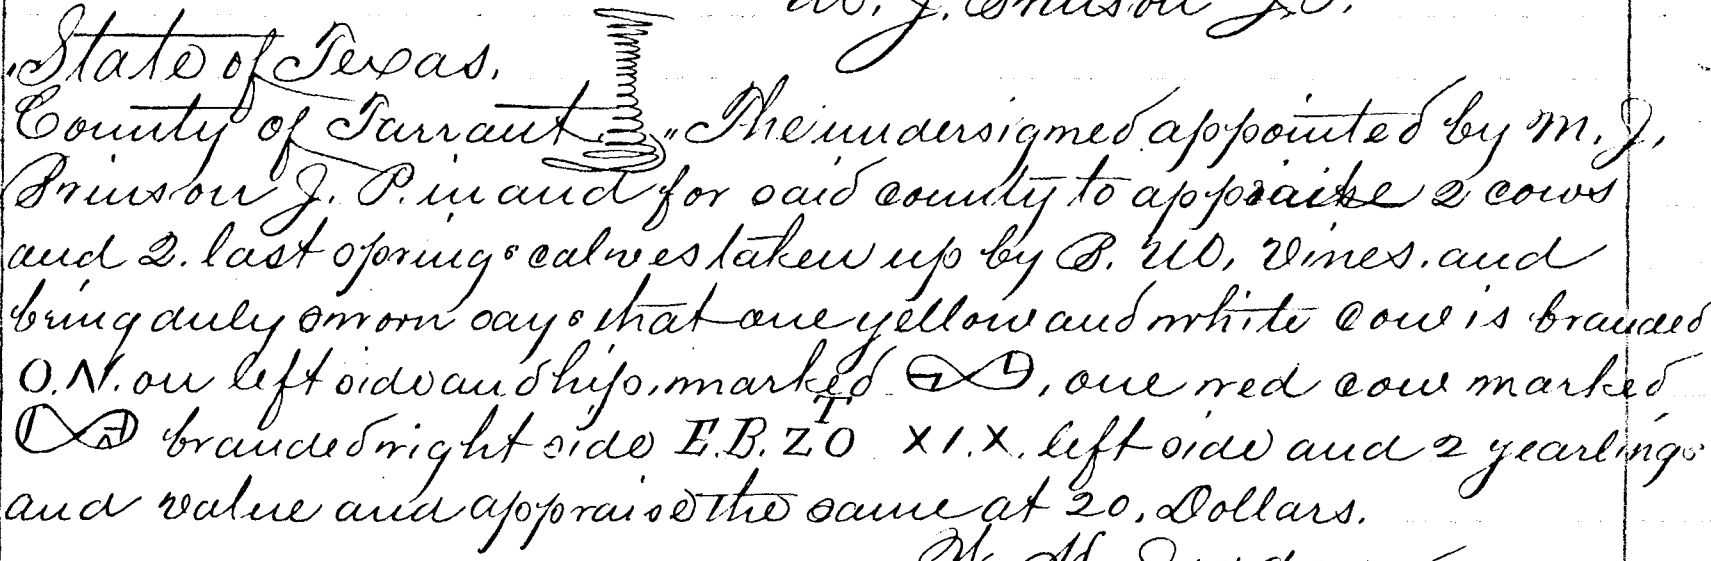 M. J. Brinson J.P.
State of Texas.
County of Tarrant " The undersigned appointed by M. J.
Brinson J. P. in and for said county to appraise 2 cows
and 2. last springs calves taken up by B. W. Vines. and
being duly sworn says that one yellow and white cow is branded
O.N. on left side and hip, marked , one red cow marked
branded right side E.B. ZO T X I. X. left side and 2 yearlings
and value and appraise the same at 20. Dollars.